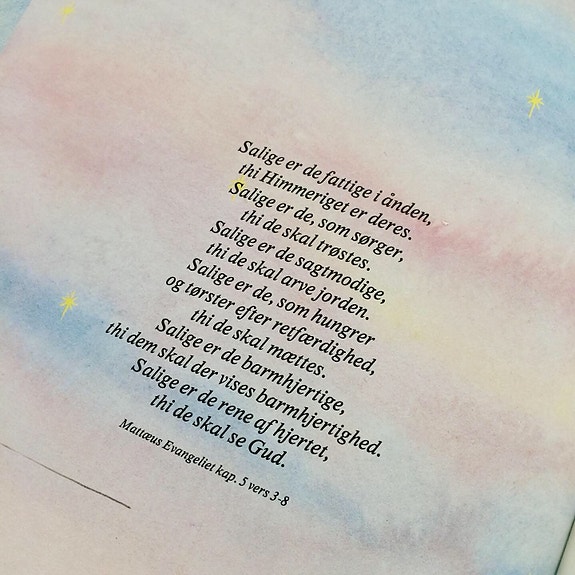 Salige er de fattige i ånden,
thi Himmeriget er deres.
Salige er de, som sørger,
thi de skal trøstes.
Salige er de sagtmodige,
thi de skal arve jorden.
Salige er de, som hungrer
og tørster efter retfærdighed,
thi de skal mættes.
Salige er de barmhjertige,
thi dem skal der vises barmhjertighed.
Salige er de rene af hjertet,
thi de skal se Gud.
Mattæus Evangeliet kap. 5 vers 3-8